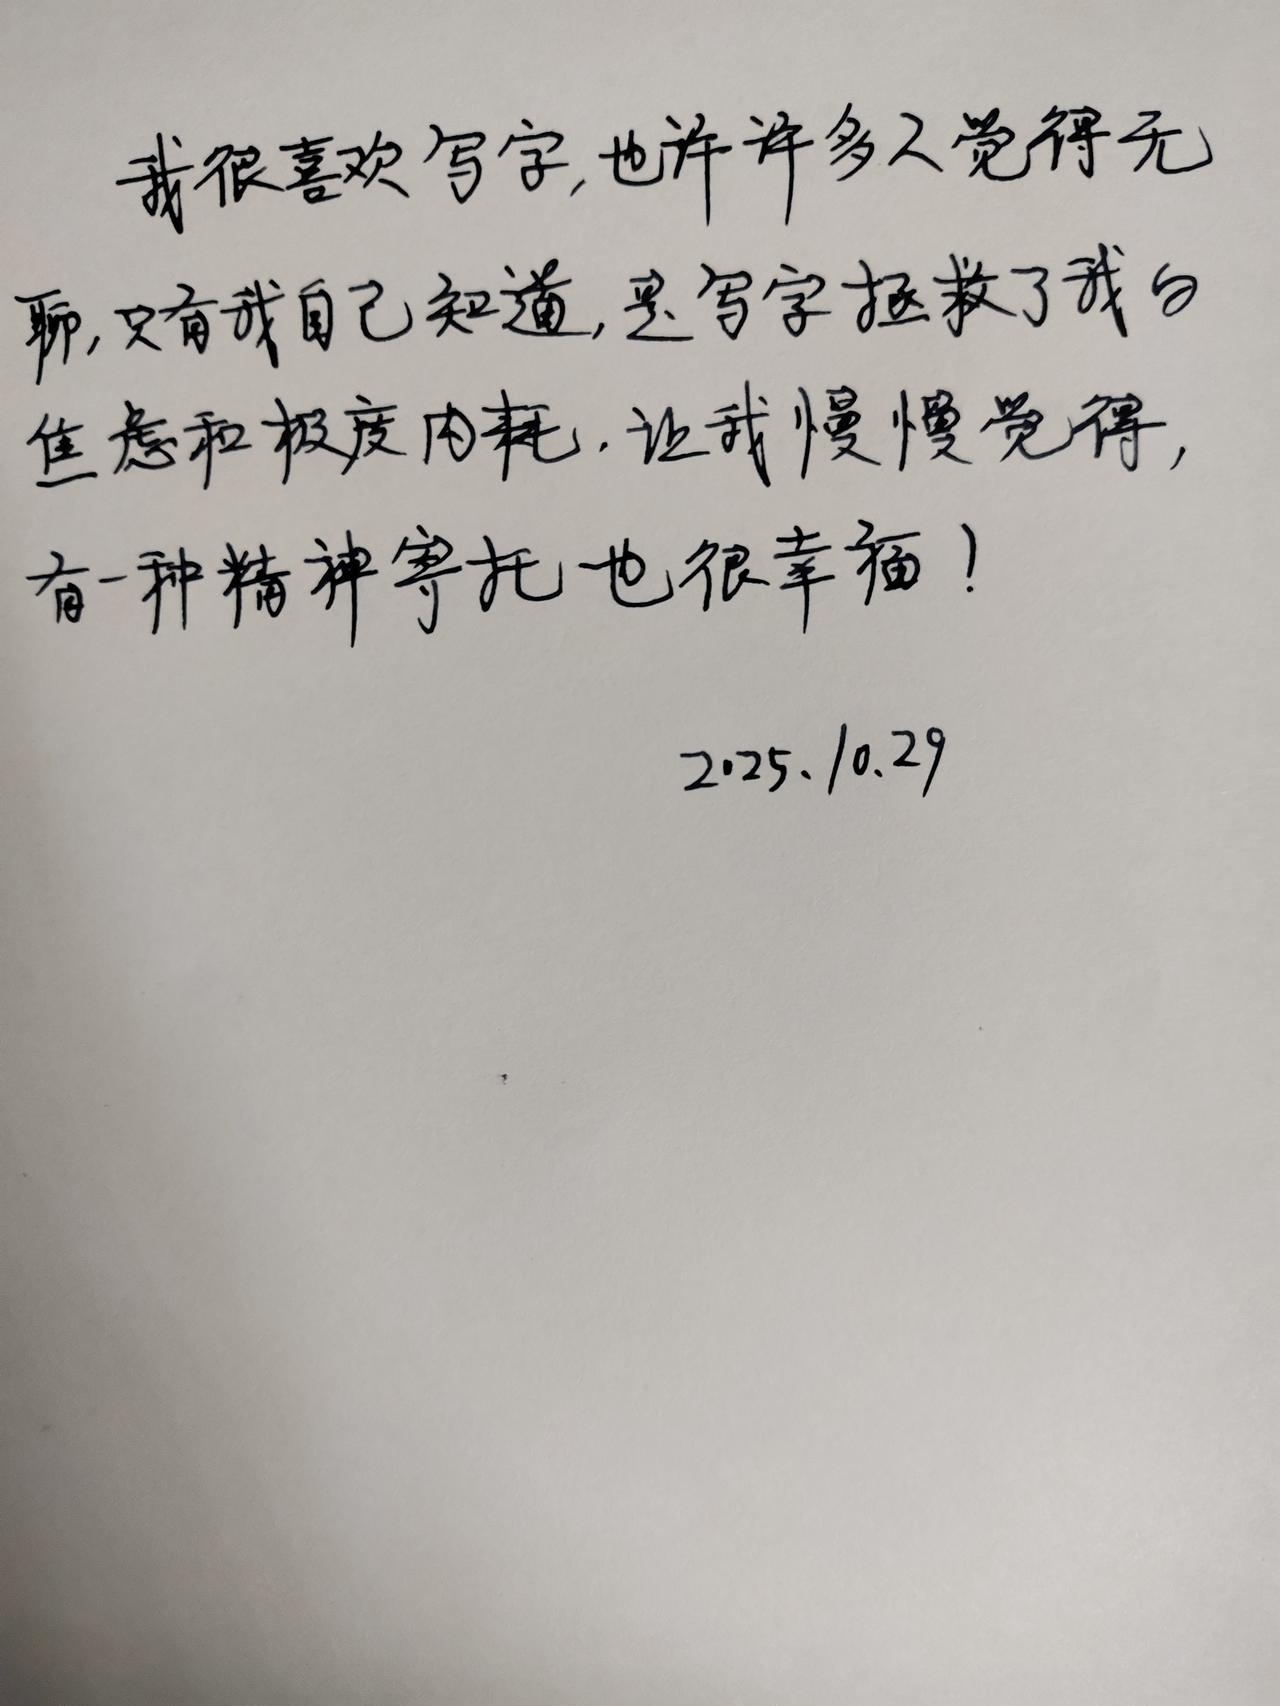 我很喜欢写字,也许许多人觉得无
聊,只有我自己知道,是写字拯救了我的
焦虑和极度内耗.让我慢慢觉得,
有一种精神寄托也很幸福!
2025.10.29